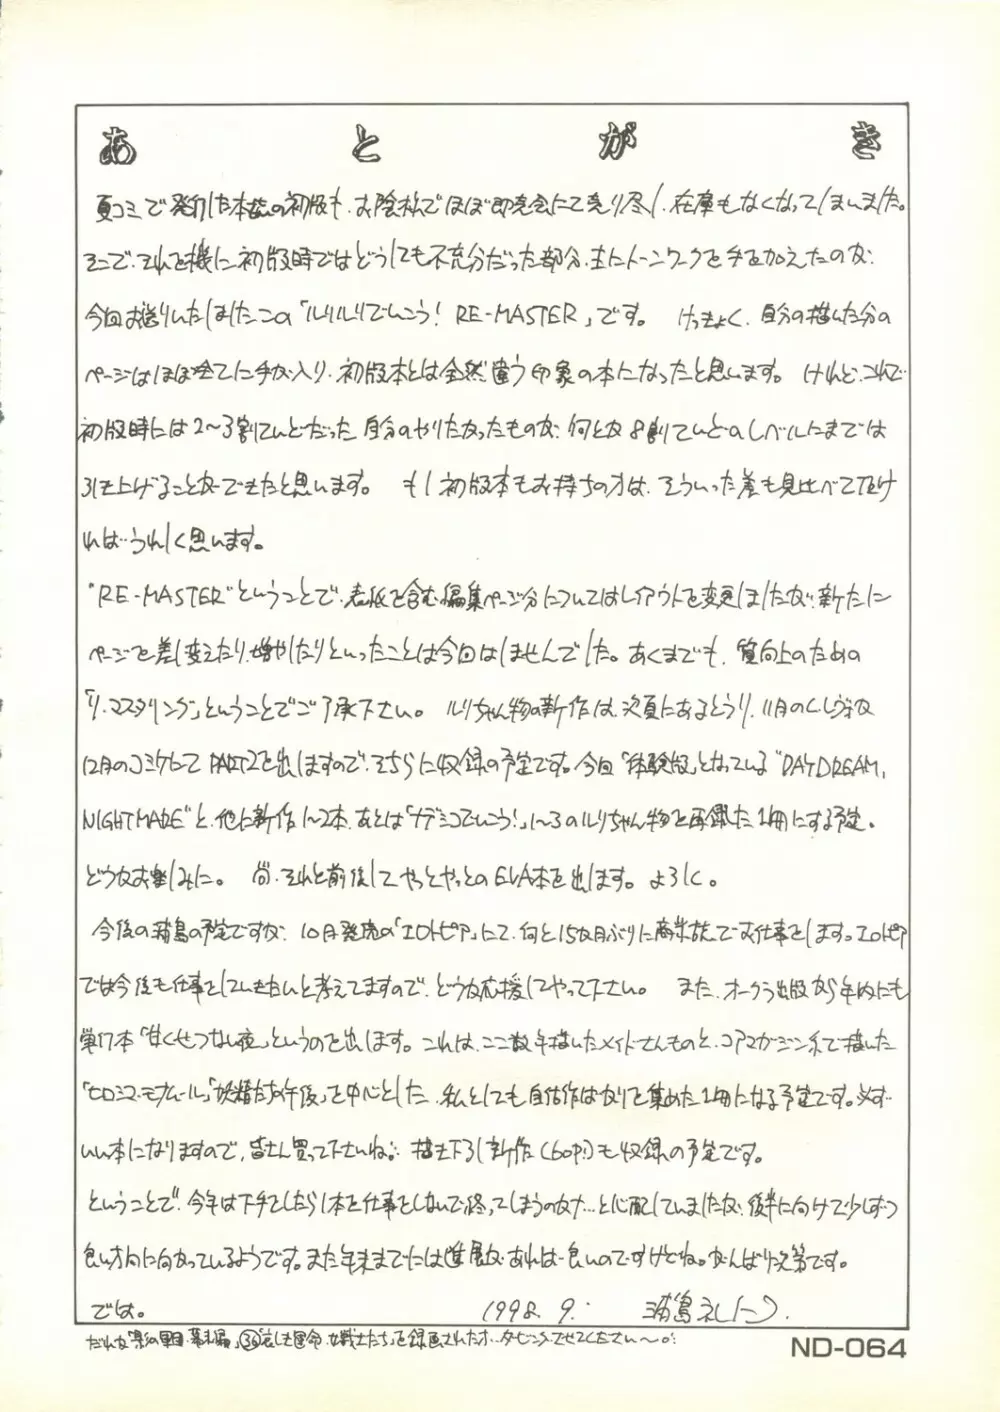 あとがき
夏コミで発行した本誌の初版も、お陰様でほぼ即売会にて売り尽し、在庫もなくなってしまいました。
そこで、それを機に、初版時ではどうしても不充分だった部分、主にトーンワークを手を加えたのが、
今回お送りいたしましたこの「ルリルリでいこう! RE-MASTER」です。 けっきょく、自分の描いた分の
ページはほぼ全てに手が入り、初版本とは全然違う印象の本になったと思います。 けれど、これで
初版時には2〜3割ていどだった自分のやりたかったものが、何とか8割ていどのレベルにまでは
引き上げることができたと思います。 もし初版本もお持ちの方は、そういった差も見比べて頂け
れば、うれしく思います。
"RE-MASTER"ということで、表紙を含む編集ページ分についてはレイアウトを変更しましたが、新たに
ページを差し変えたり、増やしたりといったことは今回はしませんでした。あくまでも、質向上のための
「リ・マスタリング」ということでご了承下さい。 ルリちゃん物の新作は、次頁にあるとうり、11月のC.レヴォか
12月のコミケにて PART2を出しますので、そちらに収録の予定です。今回「体験版」となっている"DAYDREAM,
NIGHTMARE"と、他に新作1〜2本、あとは「ナデシコでいこう!」1〜3のルリちゃん物を再録した1冊にする予定。
どうかお楽しみに。 尚、それと前後してやっとやっとのEVA本を出します。よろしく。
今後の浦島の予定ですが、10月発売の「エロトピア」にて、何と15ヵ月ぶりに商業誌でお仕事をします。エロトピア
では今後も仕事をしていきたいと考えてますので、どうか応援してやって下さい。 また、オークラ出版から年内にも
単行本「甘くせつない夜」というのを出します。これは、ここ数年描いたメイドさんものと、コアマガジン系で描いた
「ヒロシマ・モナムール」「妖精たちの午後」を中心とした、私としても自信作ばかりを集めた1冊になる予定です。必ず
いい本になりますので、皆さん買って下さいね。 描き下ろし新作(60p!)も収録の予定です。
ということで、今年は下手をしたら1本も仕事をしないで終ってしまうのかナ…と心配していましたが、後半に向けて少しずつ
良い方向に向かっているようです。また年末までには進展があれば良いのですけどね。がんばり次第です。
では。 1998. 9. 浦島礼仁
ND-064